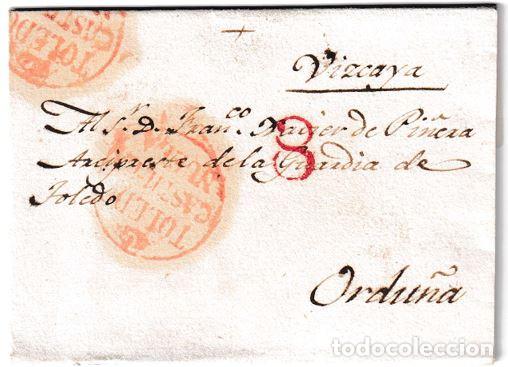 TOLEDO
CASTILLA
Vizcaya
Al S.r D. Fran.co Xavier de Piñera
8
Arcipreste de la Guardia de
Toledo
TOLEDO
CASTILLA
Orduña
todocoleccion.net